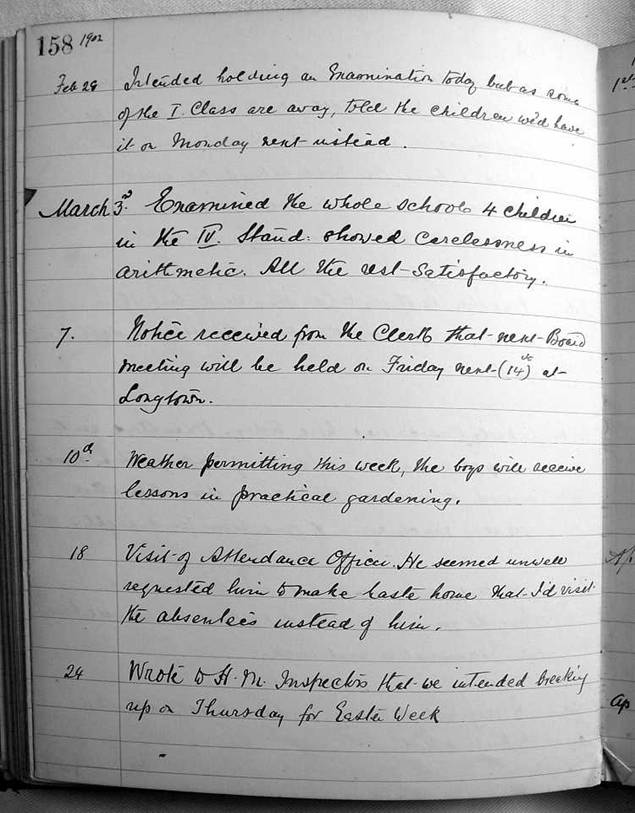 158 1902
Feb 28 Intended holding an Examination today but as some
of the I. Class are away, told the children we'd have
it on Monday next instead.
March 3rd. Examined the whole school 4 children
in the IV. Stand: showed carelessness in
arithmetic. All the rest satisfactory.
7. Notice received from the Clerk that next Board
meeting will be held on Friday next (14th) at
Longtown.
10th. Weather permitting this week, the boys will receive
lessons in practical gardening.
18 Visit of Attendance Officer. He seemed unwell
requested him to make haste home that I'd visit
the absentees instead of him.
24 Wrote to H.M. Inspectors that we intended breaking
up on Thursday for Easter Week
1st
Ap
ap